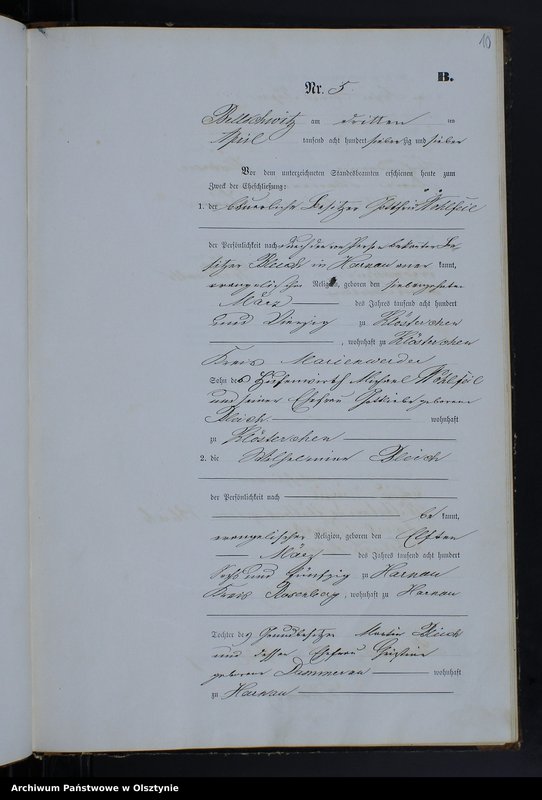 10
B.
Nr. 5
Bellschwitz am dritten
April tausend acht hundert siebenzig und sieben
Vor dem unterzeichneten Standesbeamten erschienen heute zum
Zweck der Eheschließung:
1. der bäuerliche Besitzer Wohlfeil
der Persönlichkeit nach
Bleich in Harnau kannt,
evangelischer Religion, geboren den siebzehnten
März des Jahres tausend acht hundert
und Vierzig zu Klösterchen
, wohnhaft zu Klösterchen
Kreis Marienwerder
Sohn des Hufenwirth Michael Wohlfeil
und seiner Ehefrau geborene
Bleich wohnhaft
zu Klösterchen
2. die Wilhelmine Bleich
der Persönlichkeit nach
be kannt,
evangelischer Religion, geboren den Elften
März des Jahres tausend acht hundert
Sechs und fünfzig zu Harnau
Kreis Rosenberg, wohnhaft zu Harnau
Tochter des Grundbesitzer Martin Bleich
und dessen Ehefrau Christine
geborene Dammerau wohnhaft
zu Harnau
Archiwum Państwowe w Olsztynie